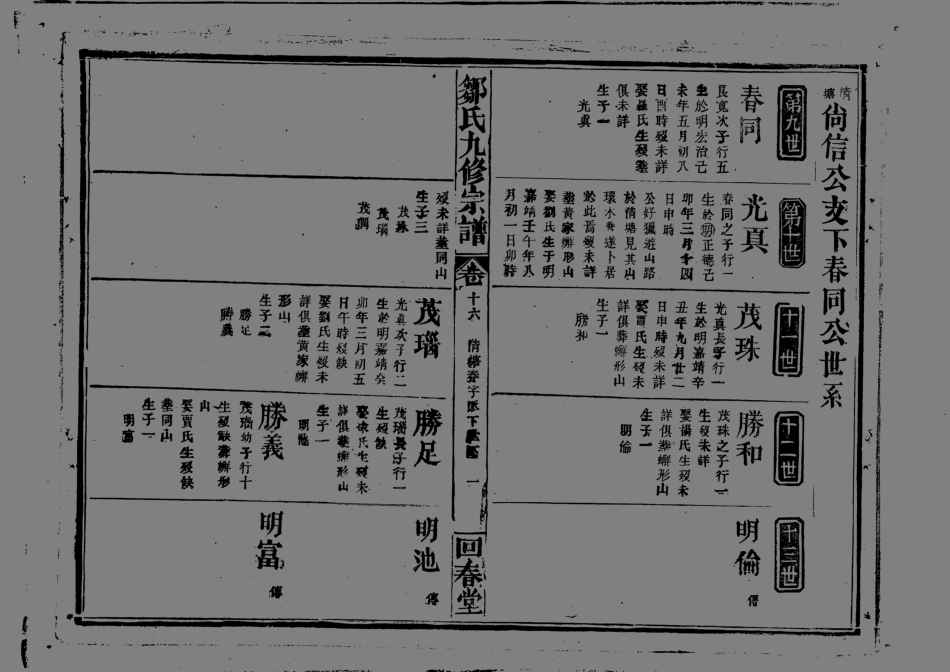 清塘
尙信公支下春同公世系
第九世
春同
良寬次子行五
生於明宏治己
未年五月初八
日酉時歿未詳
娶羅氏生歿塟
俱未詳
生子一
光真
第十世
光真
春同之子行一
生於明正德己
卯年三月十四
日申時
公好獵遊山路
於清塘見其山
環水秀遂卜居
於此焉歿未詳
塟黃家嶰形山
娶劉氏生于明
嘉靖壬午年八
月初一日卯時
歿未詳塟同山
生子三
茂珠
茂瑙
茂
十一世
茂珠
光真長子行一
生於明嘉靖辛
丑年九月廿二
日申時歿未詳
娶賈氏生歿未
詳俱葬嶰形山
生子一
勝和
茂瑙
光真次子行二
生於明嘉靖癸
卯年三月初五
日午時歿缺
娶劉氏生歿未
詳俱塟黃家嶰
形山
生子二
勝足
勝義
十二世
勝和
茂珠之子行一
生歿未詳
娶楊氏生歿未
詳俱塟嶰形山
生子一
明倫
勝足
茂瑙長子行一
生歿缺
娶 氏生歿未
詳俱塟嶰形山
生子一
明池
勝義
茂瑙幼子行十
生歿缺壽嶰形
山
娶賈氏生歿缺
塟同山
生子一
明富
十三世
明倫
傳
明池
傳
明富
傳
鄒氏九修宗譜
卷十六
清塘春字派下
一
回春堂